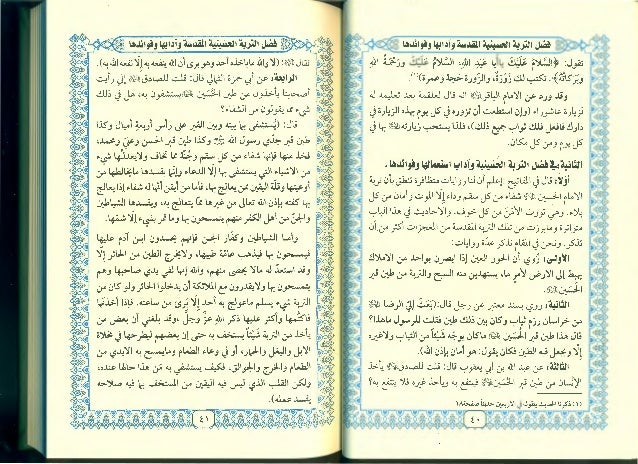 فضل التربة الحسينية المقدسة وآدابها وفوائدها
تقول: «السلام عليك يا أبا عبد الله، السلام عليك ورحمة الله
وبركاته»، تكتب لك زورة، والزورة حجة وعمرة)(١).
وقد ورد عن الامام الباقر أنه قال لعلقمة بعد تعليمه له
زيارة عاشوراء (وإن استطعت أن تزوره في كل يوم بهذه الزيارة في
دارك فافعل فلك ثواب جميع ذلك)، فلذا يستحب زيارته بها في
كل يوم ومن كل مكان.
الثانية في فضل التربة الحسينية وآداب استعمالها وفوائدها.
أولاً: قال في المفاتيح إعلم أن لنا روايات متظافرة تنطق بأن تربة
الامام الحسين شفاء من كل سقم وداء إلا الموت وأمان من كل
بلاء، وهي تورث الأمن من كل خوف، والاحاديث في هذا الباب
متواترة وما برزت من تلك التربة المقدسة من المعجزات أكثر من أن
تذكر. ونحن في المقام نذكر عدة روايات:
الأولى: روي أن الحور العين إذا ابصرن بواحد من الاملاك
يهبط إلى الارض لأمر ما، يستهدين منه السبح والتربة من طين قبر
الحسين.
الثانية: روي بسند معتبر عن رجل قال: (بعث إلي الرضا
من خراسان رزم ثياب وكان بين ذلك طين فقلت للرسول ماهذا؟
قال هذا طين قبر الحسين ما كان يوجه شيئاً من الثياب ولاغيره
إلا ويجعل فيه الطين فكان يقول: هو أمان بإذن الله).
الثالثة: عن عبد الله بن أبي يعقوب قال: قلت للصادق يأخذ
الإنسان من طين قبر الحسين فينتفع به ويأخذ غيره فلا ينتفع به؟
(١) ذكرنا الحديث في الاربعين حديثاً صفحة١٨
٤٠
فضل التربة الحسينية المقدسة وآدابها وفوائدها
فقال: (لا والله ما يأخذه أحد وهو يرى أن الله ينفعه به إلا نفعه الله به).
الرابعة: عن أبي حمزة الثمالي قال: قلت للصادق إني رأيت
أصحابنا يأخذون من طين الحسين يستشفون به، هل في ذلك
شيء مما يقولون من الشفاء؟
قال: (يستشفى بما بينه وبين القبر على رأس أربعة أميال وكذا
طين قبر جدي رسول الله وكذا طين قبر الحسن وعلي ومحمد،
فخذ منها فإنها شفاء من كل سقم وجنة مما تخاف ولايعدلها شيء
من الاشياء التي يستشفى بها إلا الدعاء وإنما يفسدها مايخالطها من
أوعيتها وقلة اليقين ممن يعالج بها، فأما من أيقن أنها له شفاء إذا يعالج
بها كفته بإذن الله تعالى من غيرها مما يتعالج به، ويفسدها الشياطين
والجن من أهل الكفر منهم يتمسحون بها وما تمر بشيء إلا شمها.
وأما الشياطين وكفار الجن فإنهم يحسدون ابن آدم عليها
فيمسحون بها فيذهب عامة طيبها، ولايخرج الطين من الحائر إلا
وقد استعد له مالا يحصى منهم، والله إنها لفي يدي صاحبها وهم
يتمسحون بها ولايقدرون مع الملائكة أن يدخلوا الحائر ولو كان من
التربة شيء يسلم ماعولج به أحد إلا برئ من ساعته، فإذا أخذتها
فاكتمها وأكثر عليها ذكر الله عز وجل، وقد بلغني أن بعض من
يأخذ من التربة شيئاً يستخف به حتى إن بعضهم ليطرحها في مخلاة
الابل والبغل والحمار، أو في وعاء الطعام ومايمسح به الايدي من
الطعام والخرج والجوالق. فكيف يستشفي به من هذا حالها عنده،
ولكن القلب الذي ليس فيه اليقين من المستخف بما فيه صلاحه
يفسد عمله).
٤١